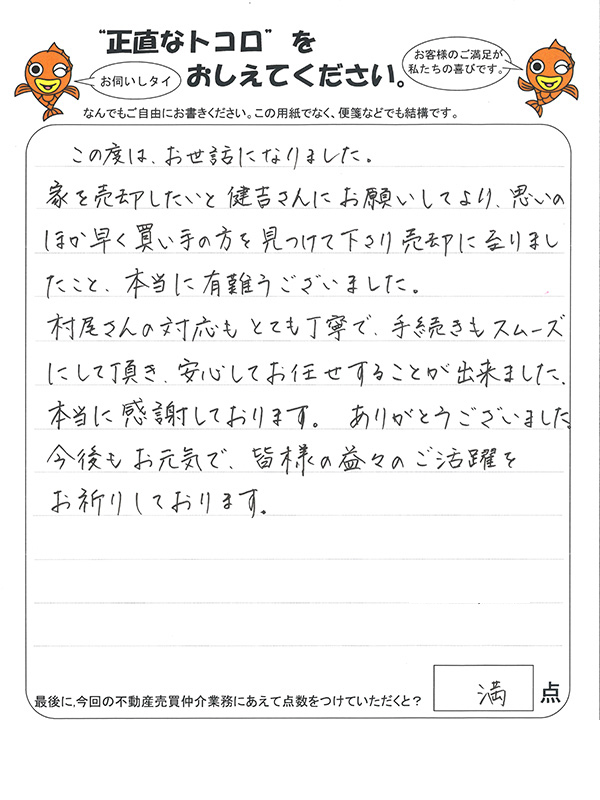 "正直なトコロ"を
おしえてください。
お伺いしタイ
お客様のご満足が
私たちの喜びです。
なんでもご自由にお書きください。この用紙でなく、便箋などでも結構です。
この度は、お世話になりました。
家を売却したいと健吉さんにお願いしてより、思いの
ほか早く買い手の方を見つけて下さり売却に至りまし
たこと、本当に有難うございました。
村尾さんの対応もとても丁寧で、手続きもスムーズ
にして頂き、安心してお任せすることが出来ました、
本当に感謝しております。 ありがとうございました。
今後もお元気で、皆様の益々のご活躍を
お祈りしております。
最後に、今回の不動産売買仲介業務にあえて点数をつけていただくと? 満 点